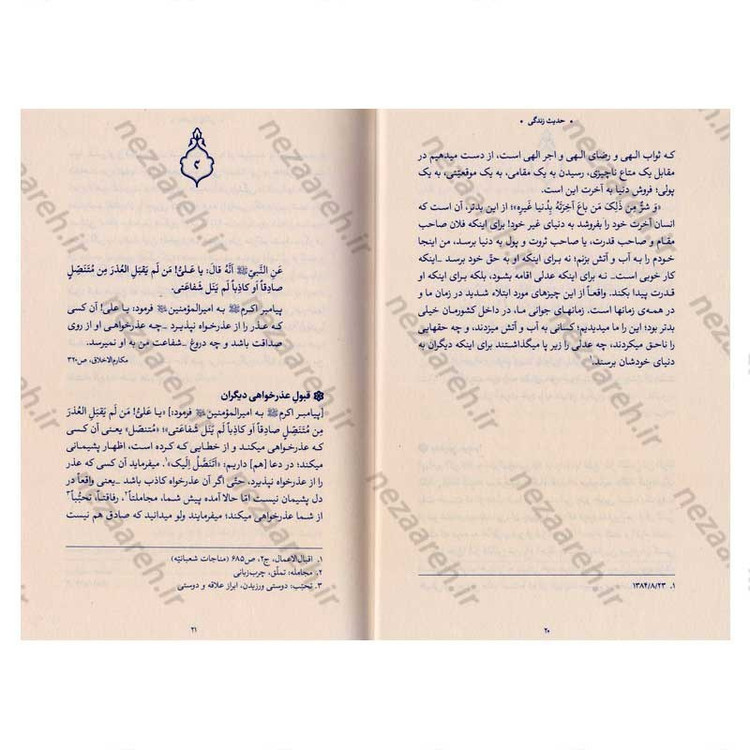 • حدیث زندگی •
که ثواب الهی و رضای الهی و اجر الهی است، از دست میدهیم در
مقابل یک متاع ناچیزی، رسیدن به یک مقامی، به یک موقعیّتی، به یک
پولی؛ فروش دنیا به آخرت این است.
«وَ شَرٌّ مِن ذٰلِکَ مَن باعَ آخِرَتَهُ بِدُنیا غَیرِه»؛ از این بدتر، آن است که
انسان آخرت خود را بفروشد به دنیای غیر خود! برای اینکه فلان صاحب
مقام و صاحب قدرت، یا صاحب ثروت و پول به دنیا برسد، من اینجا
خودم را به آب و آتش بزنم؛ نه برای اینکه او به حق خود برسد _ اینکه
کار خوبی است _ نه برای اینکه عدلی اقامه بشود، بلکه برای اینکه او
قدرت پیدا بکند. واقعاً از این چیزهای مورد ابتلاء شدید در زمان ما و
در همه‌ی زمانها است. زمانهای جوانی ما، در داخل کشورمان خیلی
بدتر بود؛ این را ما میدیدیم؛ کسانی به آب و آتش میزدند، و چه حقهایی
را ناحق میکردند، چه عدلی را زیر پا میگذاشتند برای اینکه دیگران به
دنیای خودشان برسند.۱
۱. ۱۳۸۴/۸/۲۳
۲۰
۲
عَنِ النَّبیِّ ﷺ اَنَّهُ قالَ: یا عَلیُّ! مَن لَم یَقبَلِ العُذرَ مِن مُتَنَصِّلٍ
صادِقاً اَو کاذِباً لَم یَنَل شَفاعَتی.
پیامبر اکرم ﷺ به امیرالمؤمنین فرمود: یا علی! آن کسی
که عذر را از عذرخواه نپذیرد _ چه عذرخواهی او از روی
صداقت باشد و چه دروغ _ شفاعت من به او نمیرسد.
مکارم‌الاخلاق، ص۳۲۰
قبول عذرخواهی دیگران
[پیامبر اکرم ﷺ به امیرالمؤمنین فرمود:] «یا عَلیُّ! مَن لَم یَقبَلِ العُذرَ
مِن مُتَنَصِّلٍ صادِقاً اَو کاذِباً لَم یَنَل شَفاعَتی»؛ «متنصل» یعنی آن کسی
که عذرخواهی میکند و از خطایی که کرده است، اظهار پشیمانی
میکند؛ در دعا [هم] داریم: «اَتَنَصَّلُ اِلَیک»۱. میفرماید آن کسی که عذر
را از عذرخواه نپذیرد، حتّی اگر آن عذرخواه کاذب باشد _ یعنی واقعاً در
دل پشیمان نیست امّا حالا آمده پیش شما، مجاملتاً۲، رفاقتاً، تحبّباً۳
از شما عذرخواهی میکند؛ میفرمایند ولو میدانید که صادق هم نیست
۱. اقبال‌الاعمال، ج۲، ص۶۸۵ (مناجات شعبانیّه)
۲. مجامله: تملّق، چرب‌زبانی
۳. تحبّب: دوستی ورزیدن، ابراز علاقه و دوستی
۲۱
nezaareh.ir
nezaareh.ir
nezaareh.ir
nezaareh.ir
nezaareh.ir
nezaareh.ir